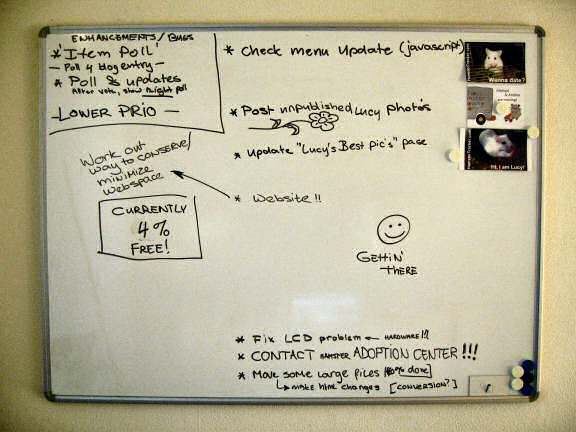 ENHANCEMENTS / BUGS
* 'Item Poll'
- Poll 4 blog entry -
* Poll & updates
After vote, show right poll
- LOWER PRIO -
* Check menu update (javascript)
* Post unpublished Lucy photo's
* Update "Lucy's Best Pic's" page
* Website !!
Work out
way to conserve/
minimize
webspace
CURRENTLY
4%
FREE!
GETTIN'
THERE
* Fix LCD problem ← HARDWARE!!
* CONTACT HAMSTER ADOPTION CENTER !!!
* Move some large files
→ make html changes [CONVERSION?]
Wanna date?
Hi, I am Lucy!